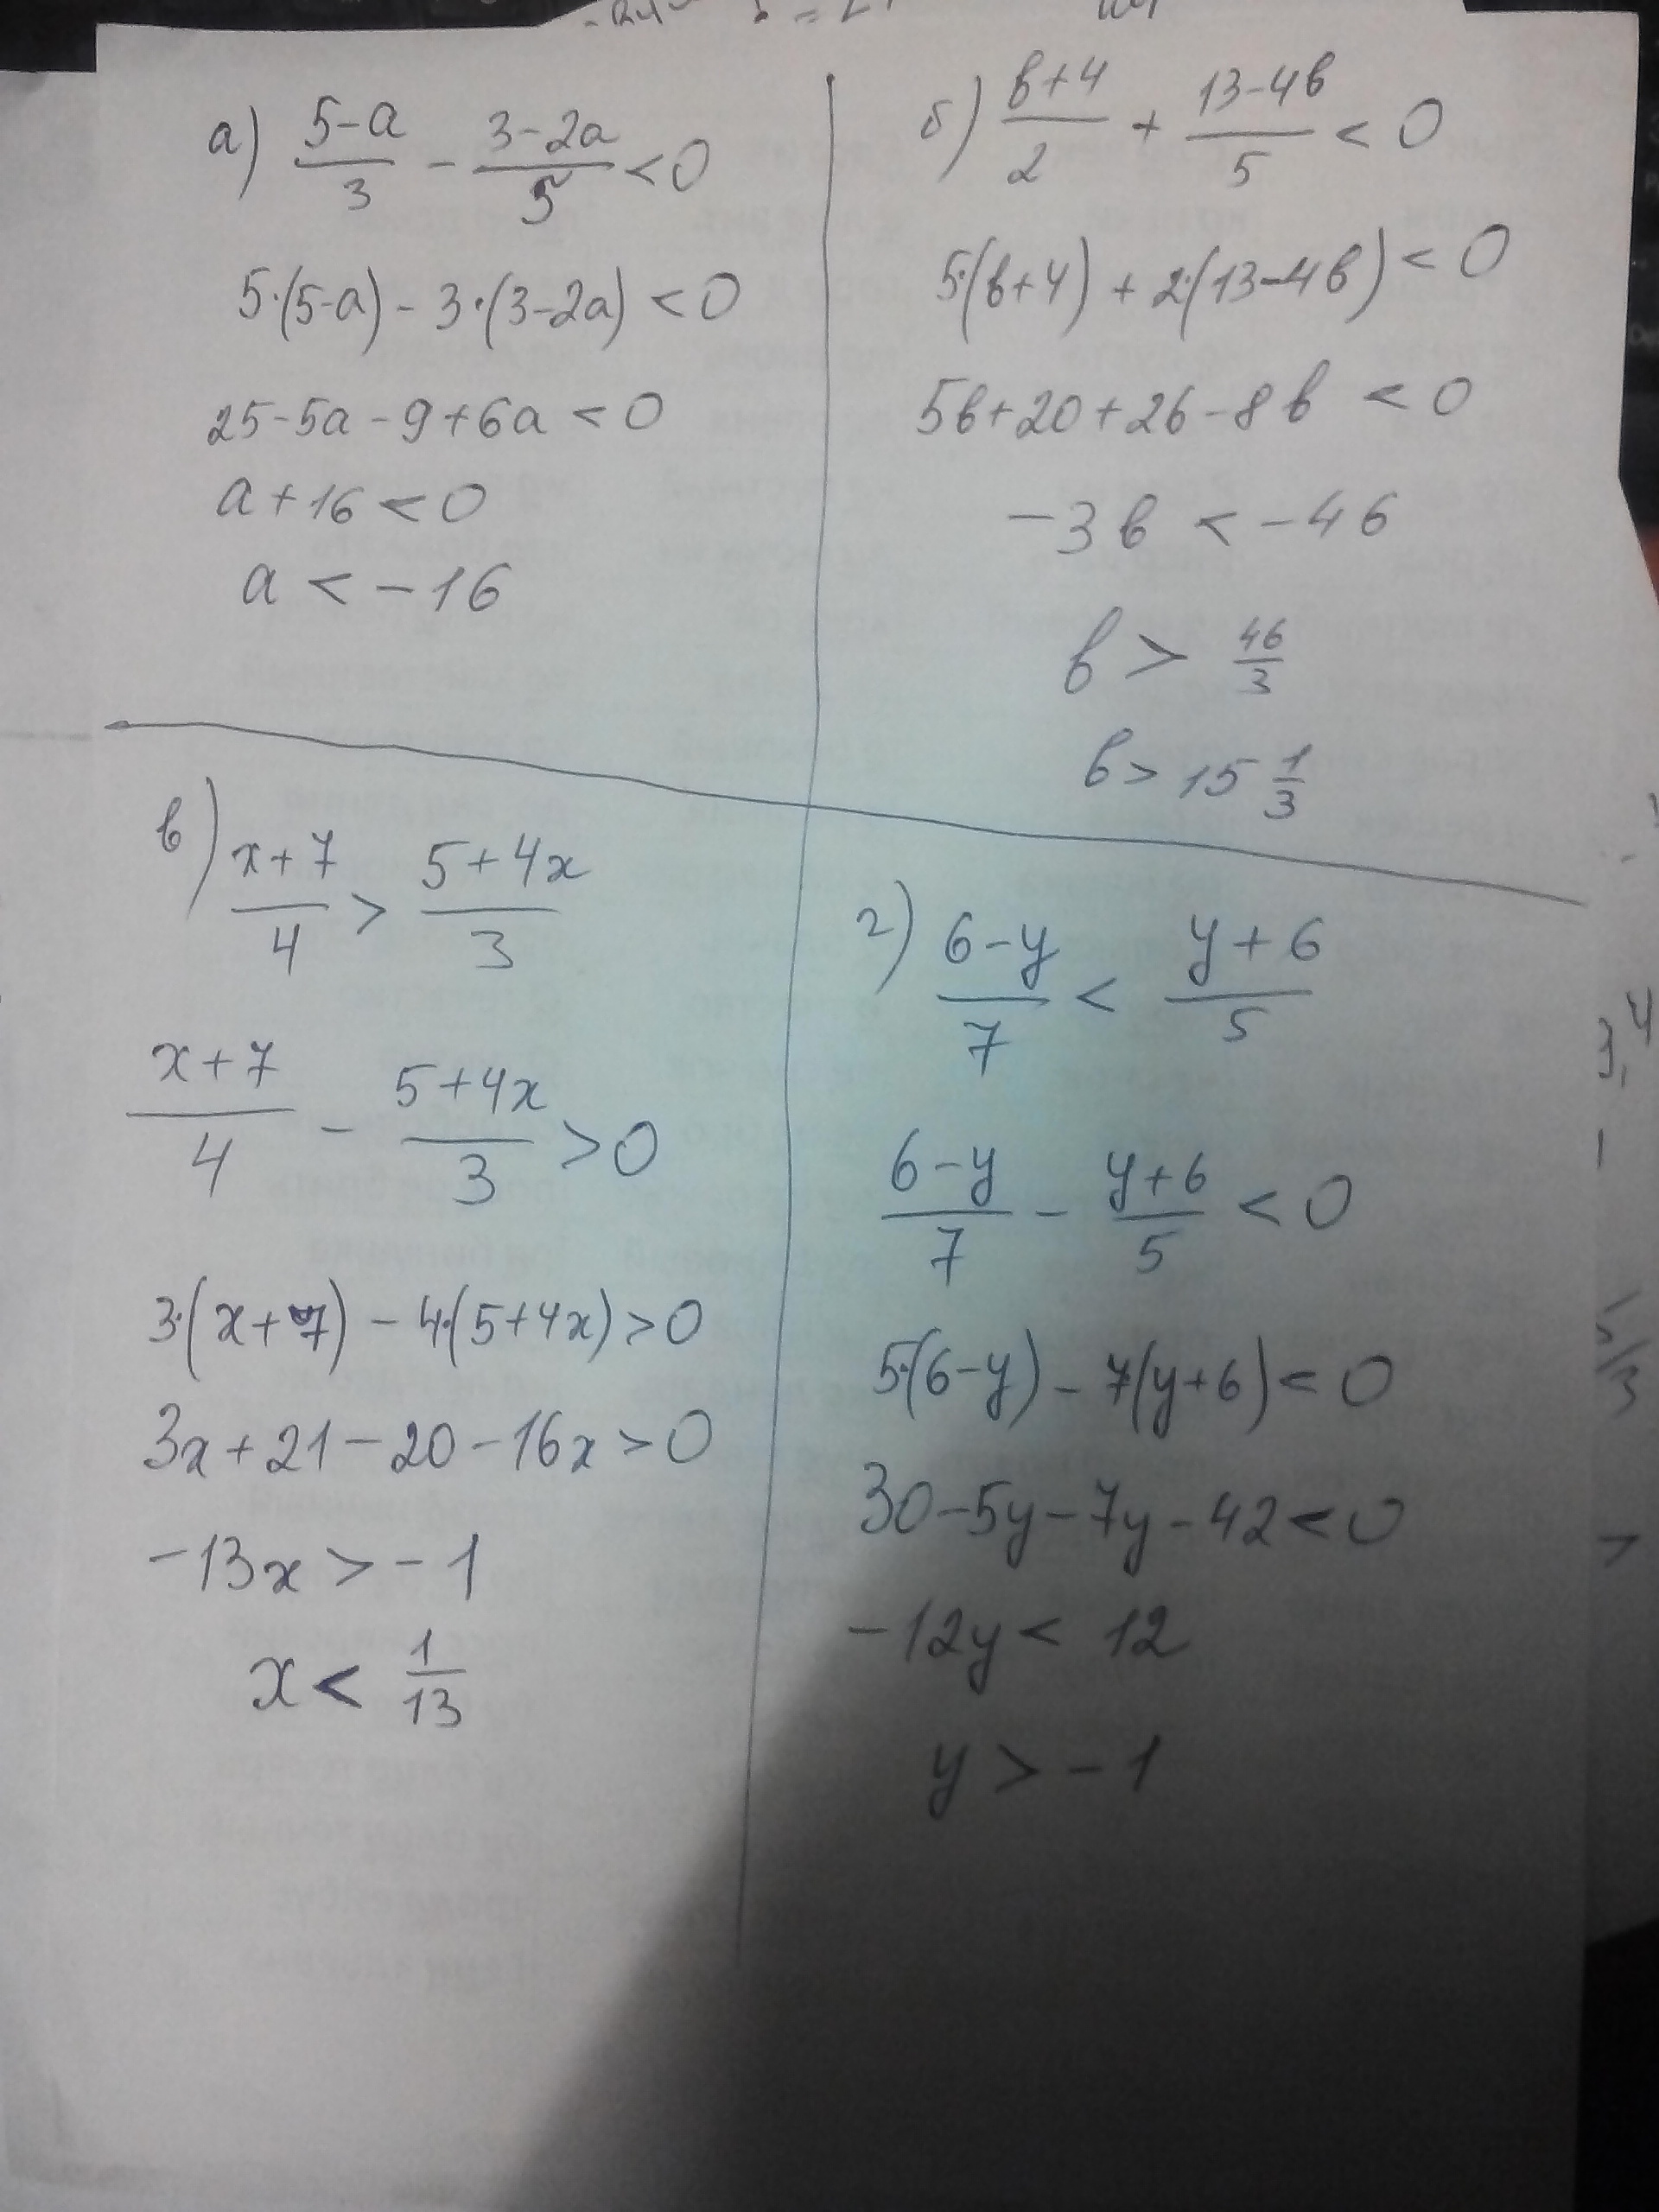 а) (5-a)/3 - (3-2a)/5 < 0
5·(5-a) - 3·(3-2a) < 0
25-5a-9+6a < 0
a+16 < 0
a < -16
б) (в+4)/2 + (13-4в)/5 < 0
5·(в+4) + 2·(13-4в) < 0
5в+20+26-8в < 0
-3в < -46
в > 46/3
в > 15 1/3
в) (x+7)/4 > (5+4x)/3
(x+7)/4 - (5+4x)/3 > 0
3·(x+7) - 4·(5+4x) > 0
3x+21-20-16x > 0
-13x > -1
x < 1/13
г) (6-y)/7 < (y+6)/5
(6-y)/7 - (y+6)/5 < 0
5·(6-y) - 7(y+6) < 0
30-5y-7y-42 < 0
-12y < 12
y > -1